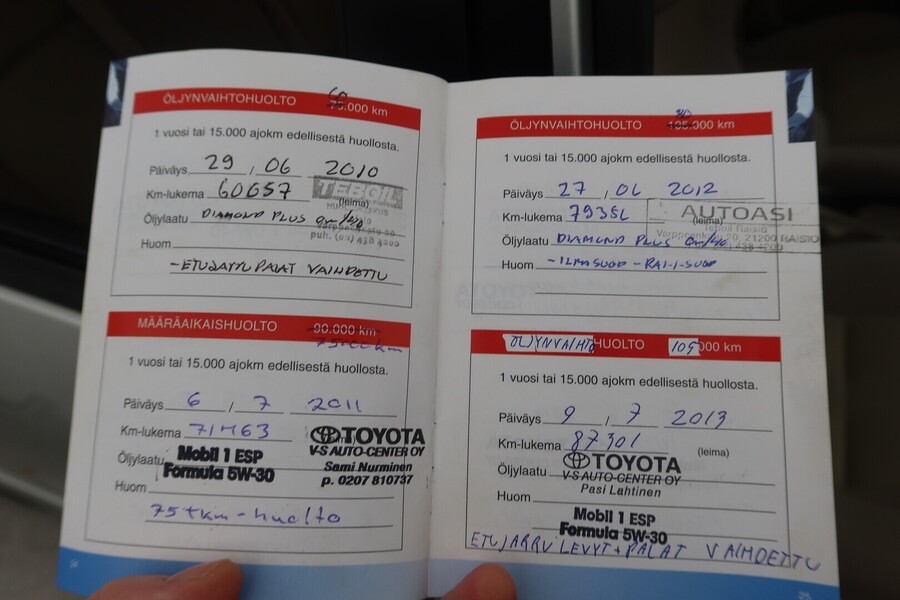 ÖLJYNVAIHTOHUOLTO 60.000 km
1 vuosi tai 15.000 ajokm edellisestä huollosta.
Päiväys 29 , 06 2010
Km-lukema 60657
TEBOIL
(leima)
Öljylaatu DIAMOND PLUS
puh. (02) 438 4200
Huom
-ETUJARRUPALAT VAIHDETTU
MÄÄRÄAIKAISHUOLTO 90.000 km
75000km
1 vuosi tai 15.000 ajokm edellisestä huollosta.
Päiväys 6 , 7 2011
Km-lukema 71463
TOYOTA
V-S AUTO-CENTER OY
Sami Nurminen
p. 0207 810737
Öljylaatu Mobil 1 ESP
Formula 5W-30
Huom
75tkm-huolto
ÖLJYNVAIHTOHUOLTO 105.000 km
1 vuosi tai 15.000 ajokm edellisestä huollosta.
Päiväys 27 , 06 2012
Km-lukema 79356
(leima)
AUTOASI
Teboil Raisio
20, 21200 RAISIO
Öljylaatu DIAMOND PLUS
Huom -ILMASUOD -RAI-I-SUOD
ÖLJYNVAIHTOHUOLTO 105.000 km
1 vuosi tai 15.000 ajokm edellisestä huollosta.
Päiväys 9 , 7 2013
Km-lukema 87301
(leima)
TOYOTA
V-S AUTO-CENTER OY
Pasi Lahtinen
Öljylaatu
Huom
Mobil 1 ESP
Formula 5W-30
ETUJARRULEVYT+PALAT VAIHDETTU